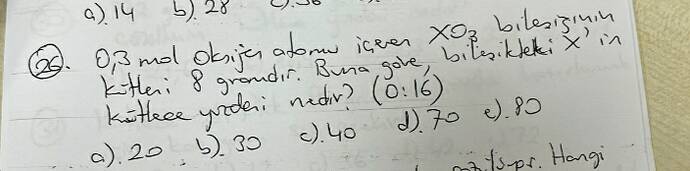 a). 14 b). 28
26. 0,3 mol Oksijen atomu içeren XO3 bileşiğinin
kütlesi 8 gramdır. Buna göre, bileşikteki X'in
kütlece yüzdesi nedir? (O:16)
a). 20 b). 30 c). 40 d). 70 e). 80
Hangi